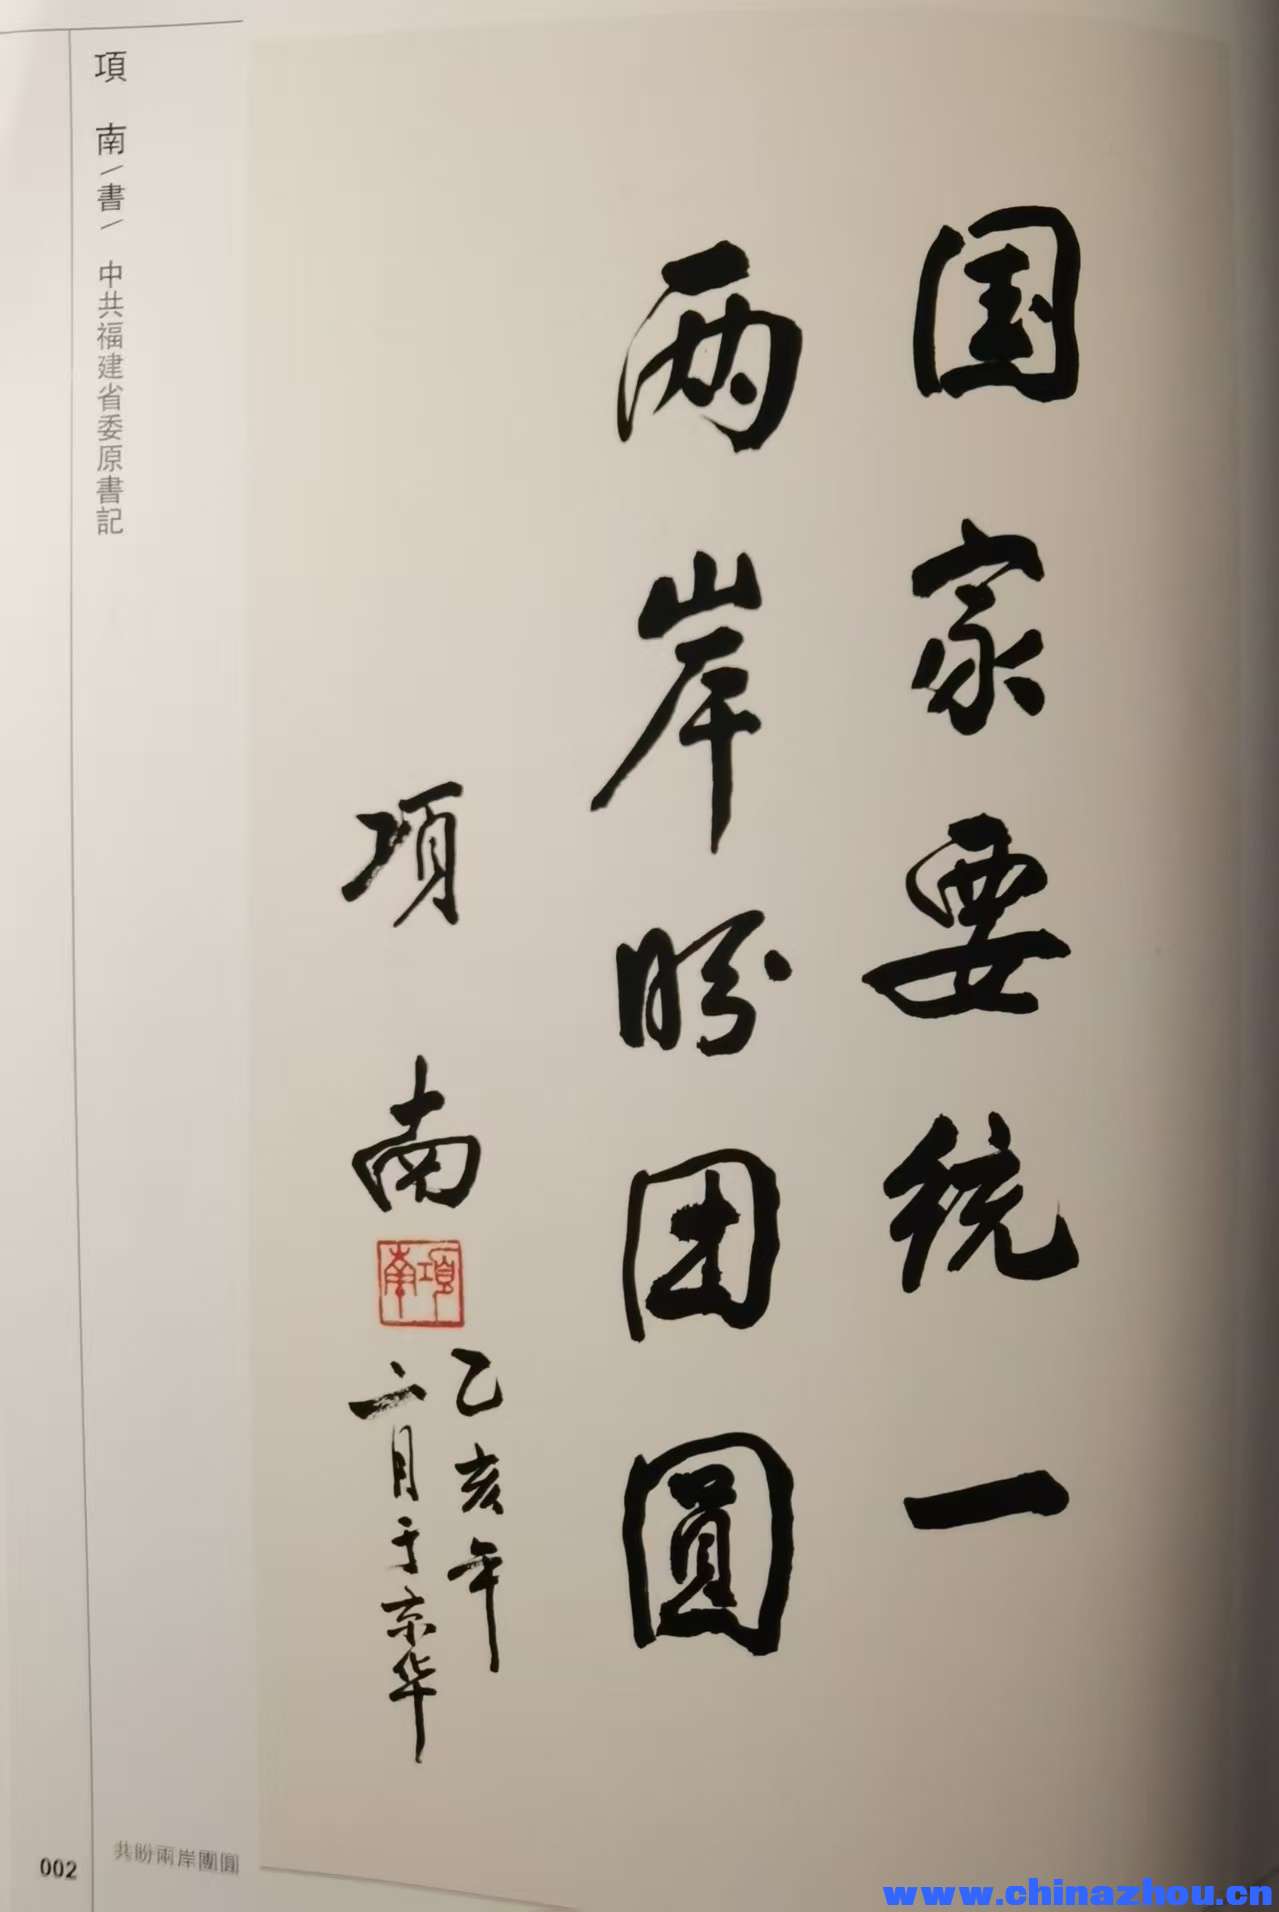 国家要统一
两岸盼团圆
项南
項南
乙亥年
二月于京华
項 南\書\ 中共福建省委原書記
共盼兩岸團圓
002
www.chinazhou.cn